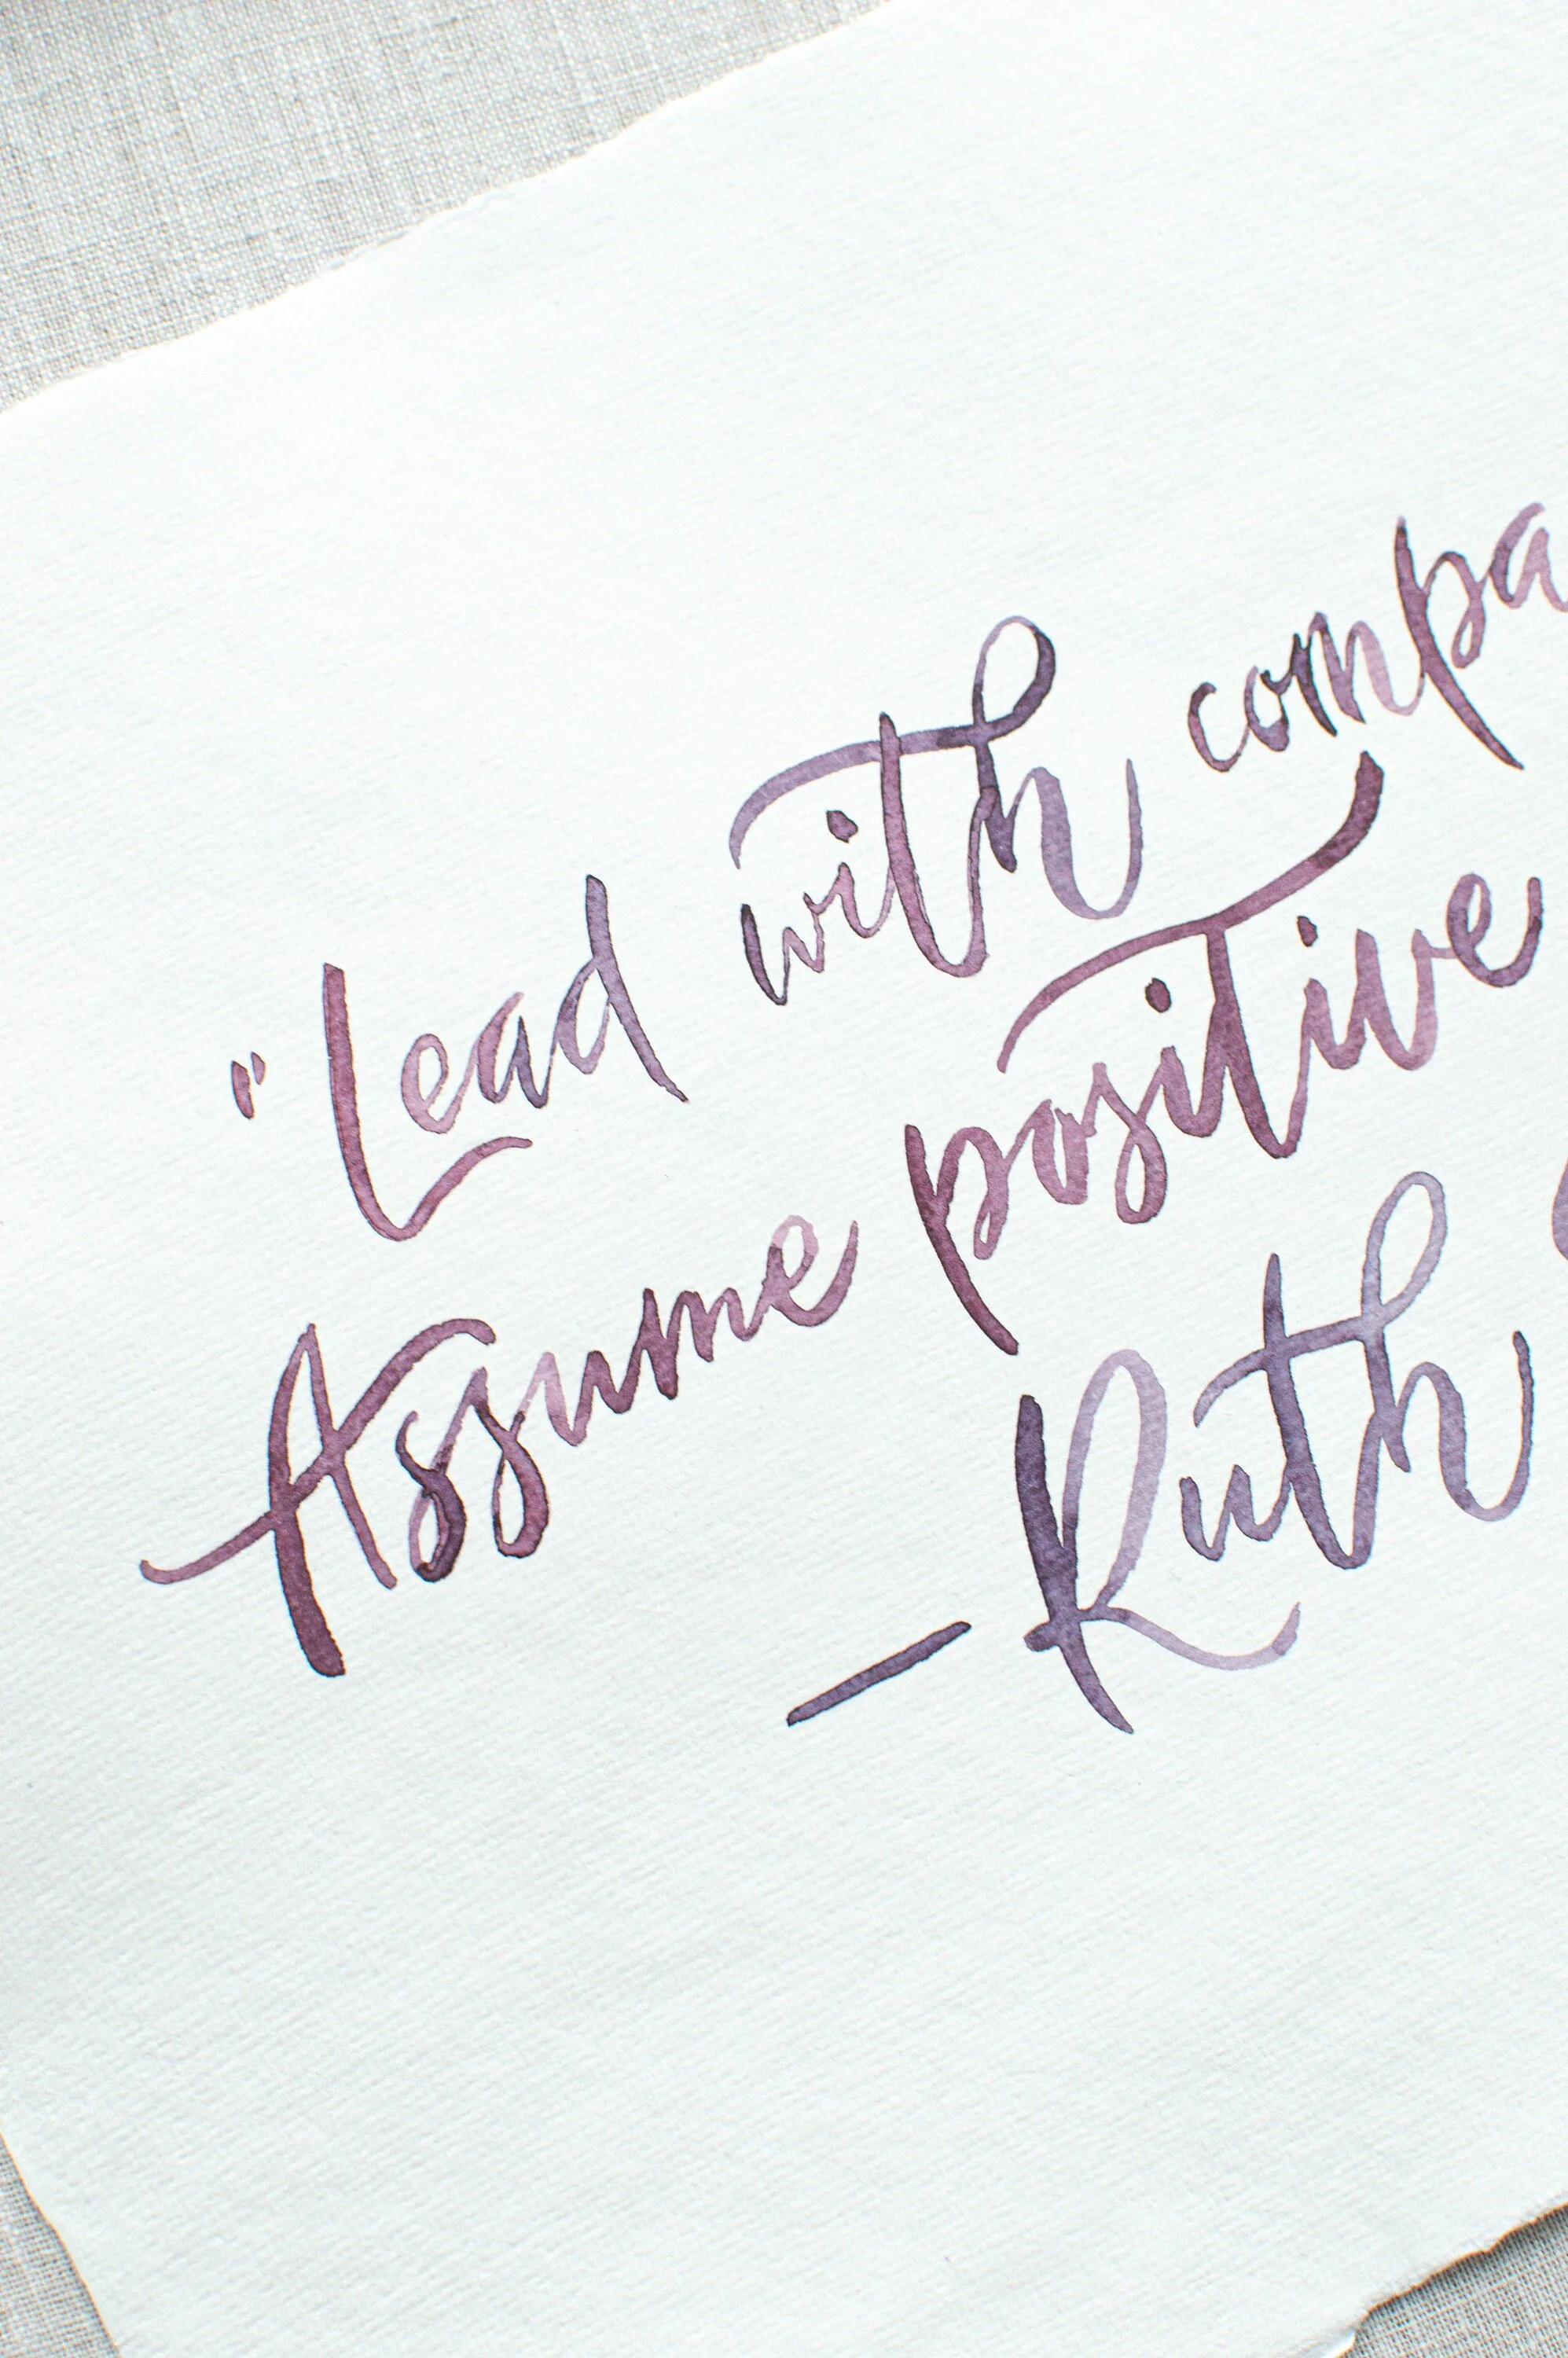 "Lead with compa
Assume positive
—Ruth